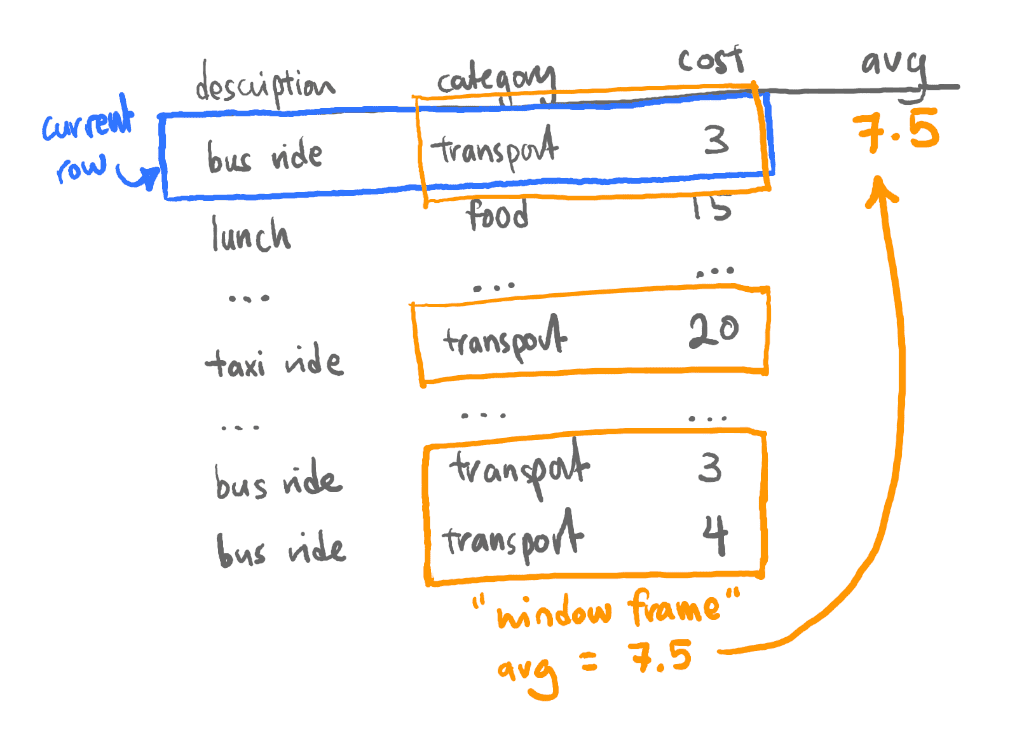 description category cost avg
current row
bus ride transport 3 7.5
lunch food 15
... ... ...
taxi ride transport 20
... ... ...
bus ride transport 3
bus ride transport 4
"window frame"
avg = 7.5